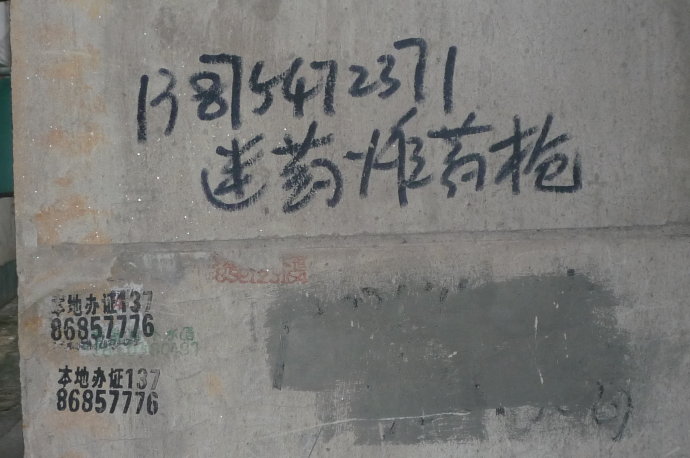 13875472371
迷药炸药枪
本地办证137
86857776
本地办证137
86857776